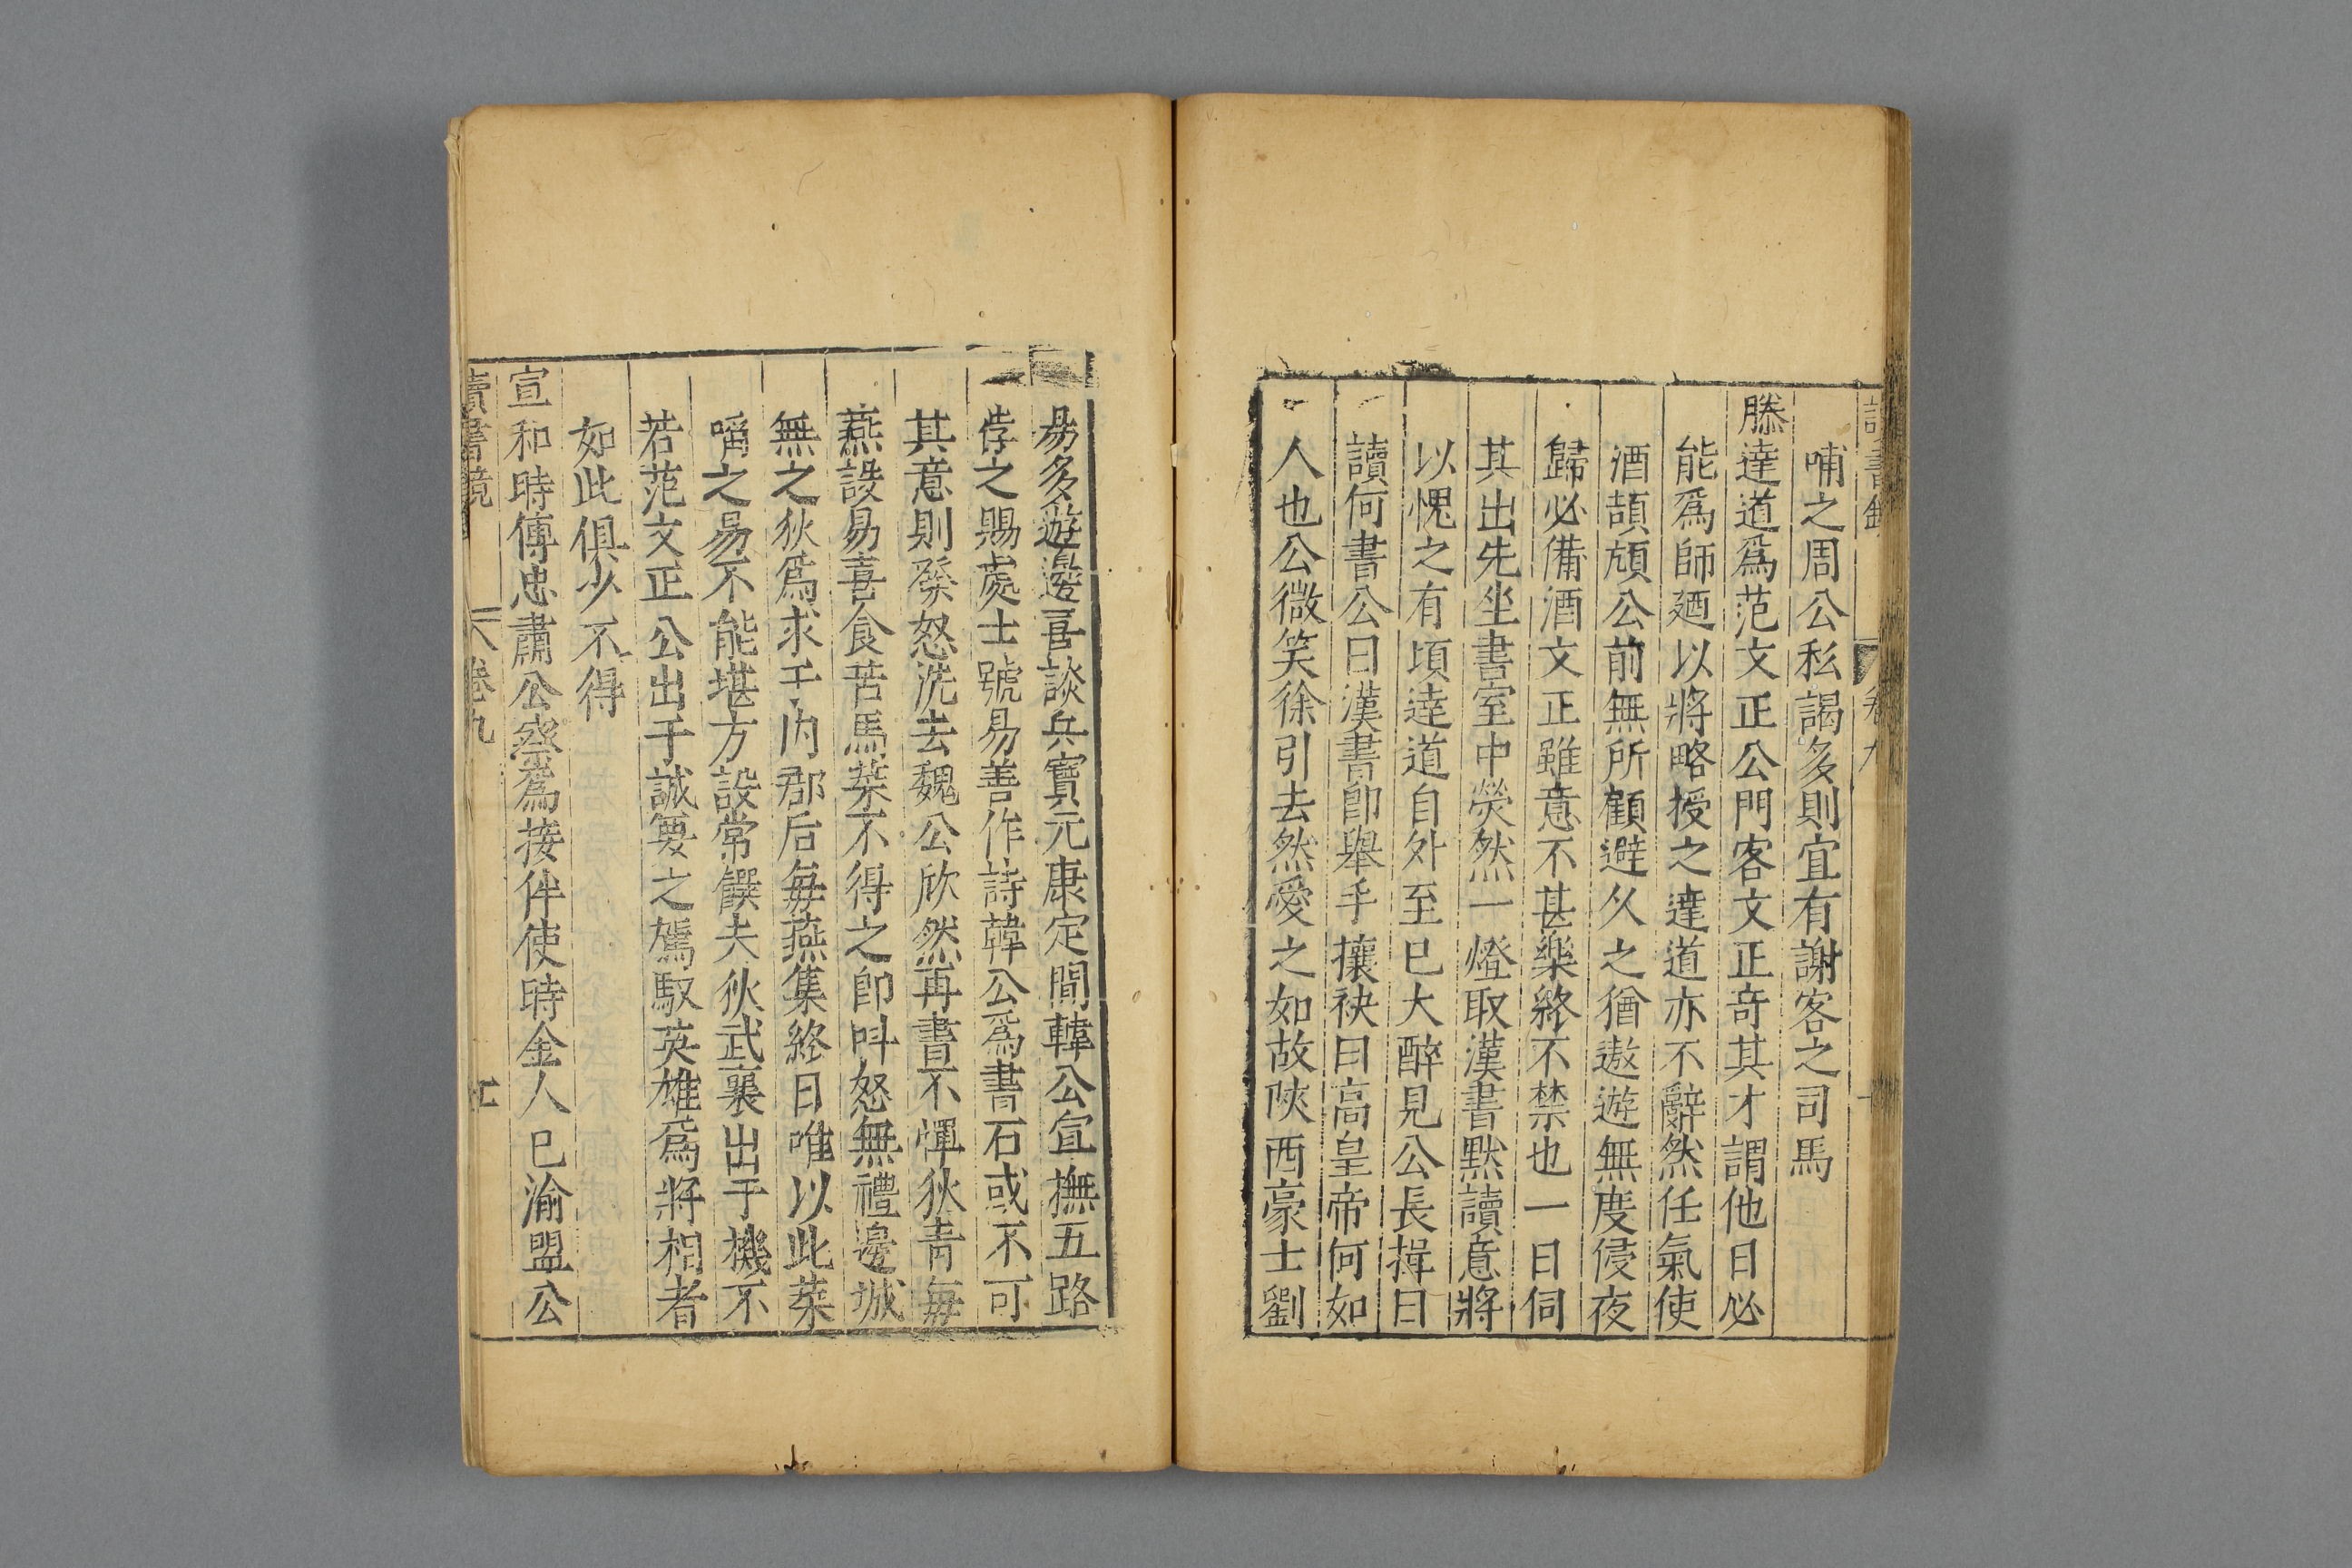 哺之周公私謁多則宜有謝客之司馬
滕達道爲范文正公門客文正竒其才謂他日必
能爲師廼以將略授之達道亦不辭然任氣使
酒頡頏公前無所顧避久之猶遨遊無度侵夜
歸必備酒文正雖意不甚樂終不禁也一日伺
其出先坐書室中熒然一燈取漢書默讀意將
以愧之有頃達道自外至巳大醉見公長揖曰
讀何書公曰漢書卽舉手攘袂曰高皇帝何如
人也公微笑徐引去然愛之如故陜西豪士劉
易多遊邊喜談兵寶元康定間韓公宣撫五路
俦之賜處士號易善作詩韓公爲書石或不可
其意則發怒洗去魏公欣然再書不憚狄青每
燕設易喜食苦馬菜不得之卽呌怒無禮邊城
無之狄爲求于内郡后每燕集終日唯以此菜
啗之易不能堪方設常饌夫狄武襄出于機不
若范文正公出于誠要之駕馭英雄爲將相者
如此俱少不得
宣和時傳忠肅公察爲接伴使時金人巳渝盟公
讀書鏡 卷九